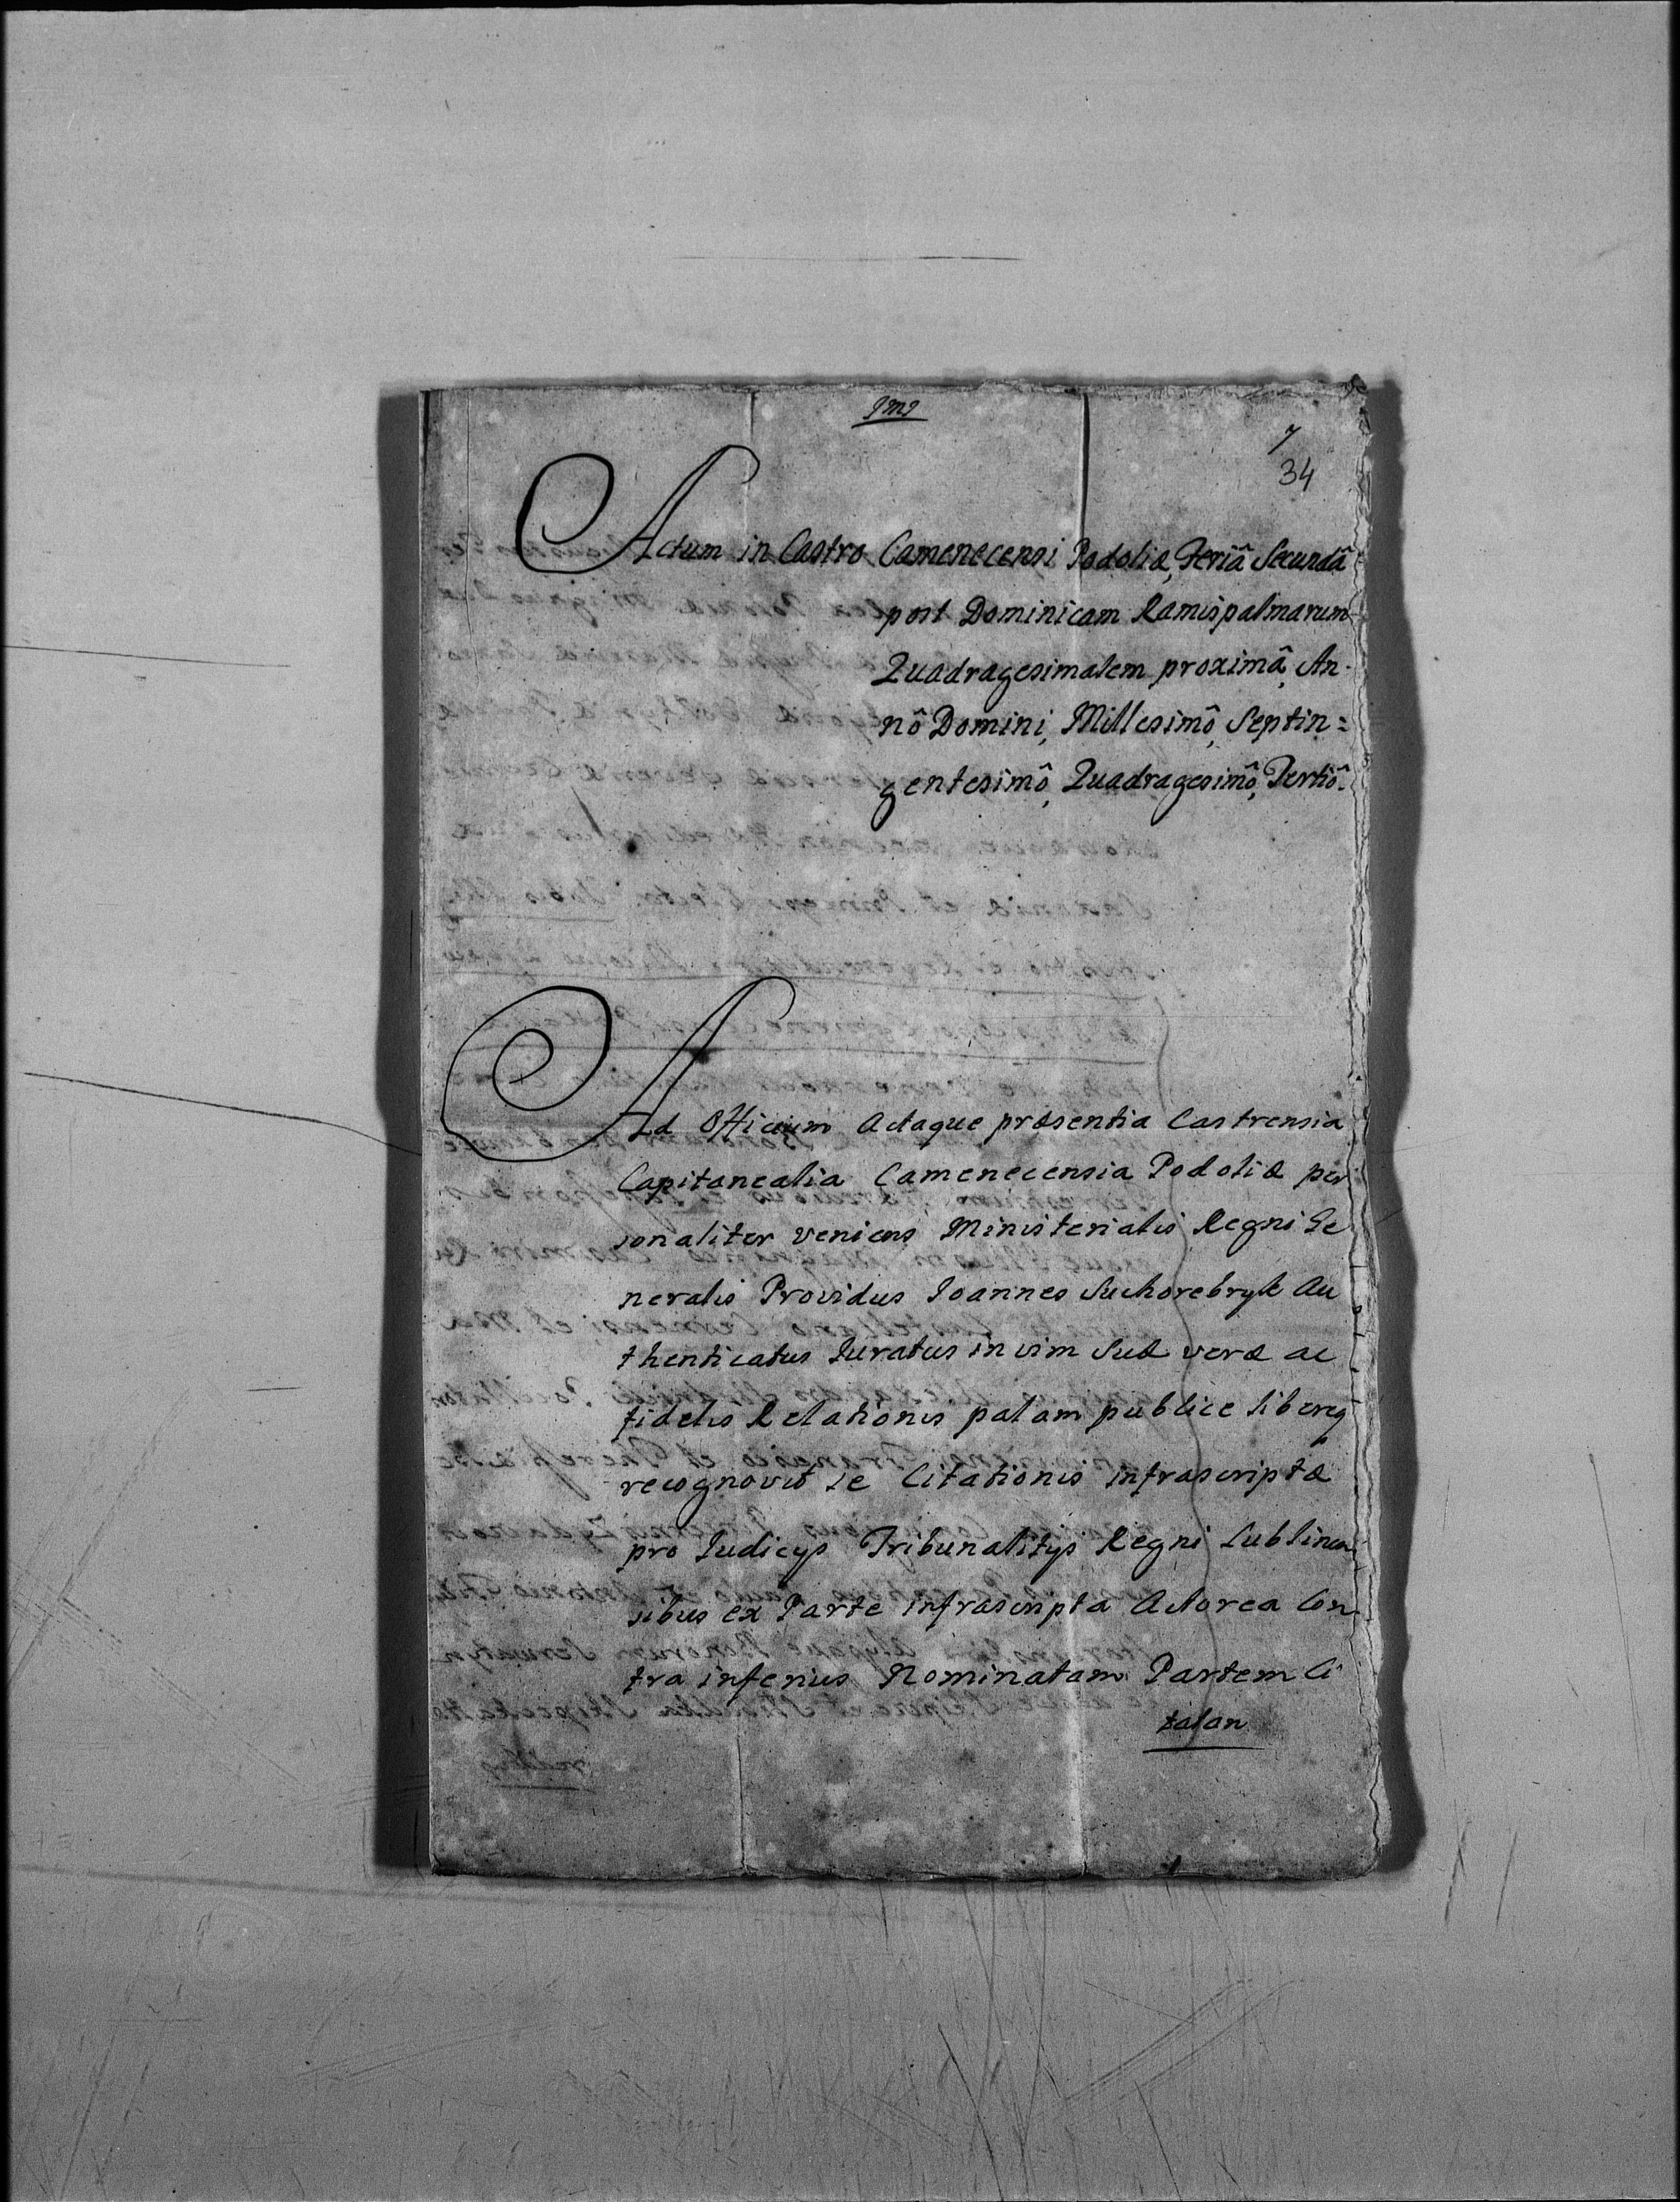 JMJ
7
34
Actum in Castro Camenecensi Podoliæ, Feriâ Secundâ
post Dominicam Ramispalmarum
Quadragesimalem proximâ, An-
nô Domini, Millesimô, Septin=
gentesimô, Quadragesimô, Tertiô.
Ad Officium Actaque præsentia Castrensia
Capitanealia Camenecensia Podoliæ per
sonaliter veniens Ministerialis Regni Ge
neralis Providus Joannes Suchorebryk Au
thenticatus Juratus in vim Suæ veræ ac
fidelis Relationis palam publice libereq
recognovit se Citationis infrascriptæ
pro Judicijs Tribunalitijs Regni Lublinen
sibus ex Parte infrascripta Actorea Con
tra inferius Nominatam Partem Ci
tatan